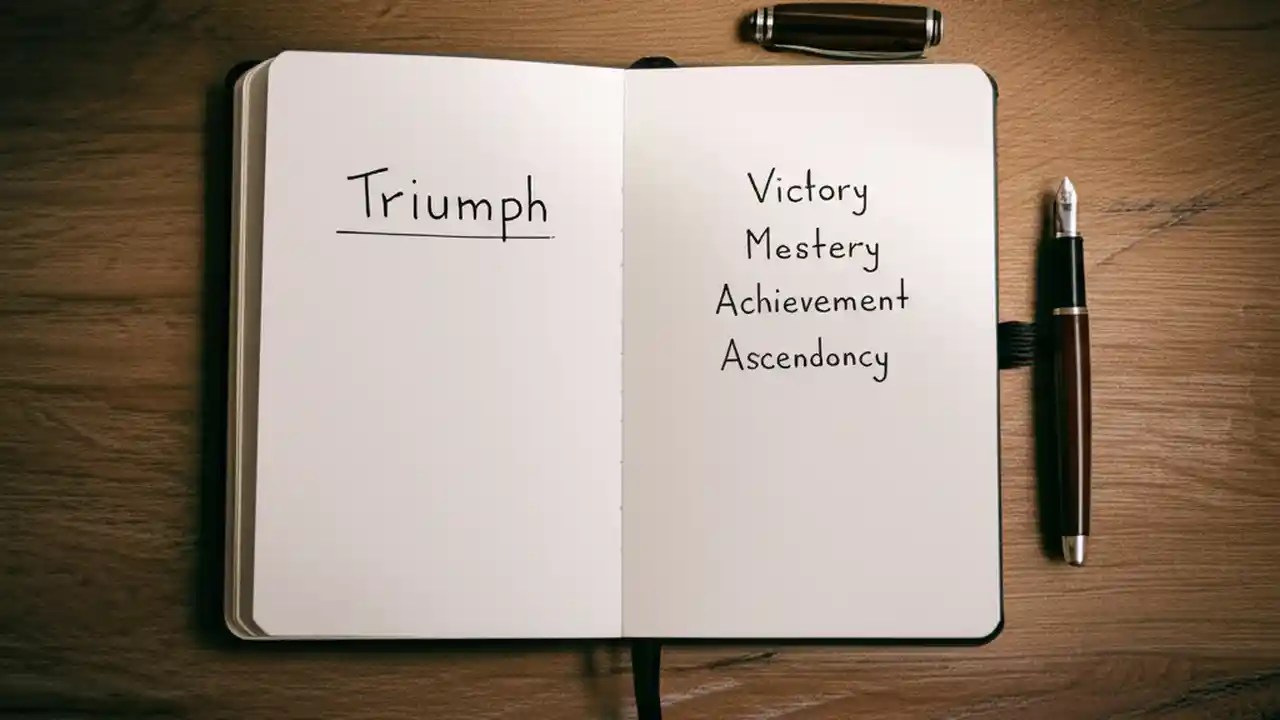 Triumph
Victory
Mestery
Achievement
Ascendoncy